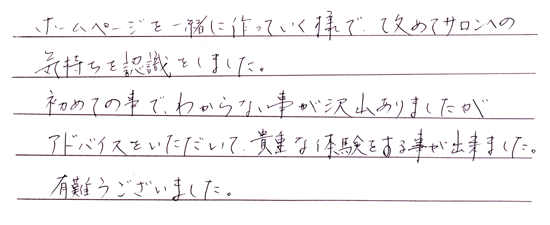 ホームページを一緒に作っていく様で、改めてサロンへの
気持ちを認識をしました。
初めての事で、わからない事が沢山ありましたが
アドバイスをいただいて、貴重な体験をする事が出来ました。
有難うございました。